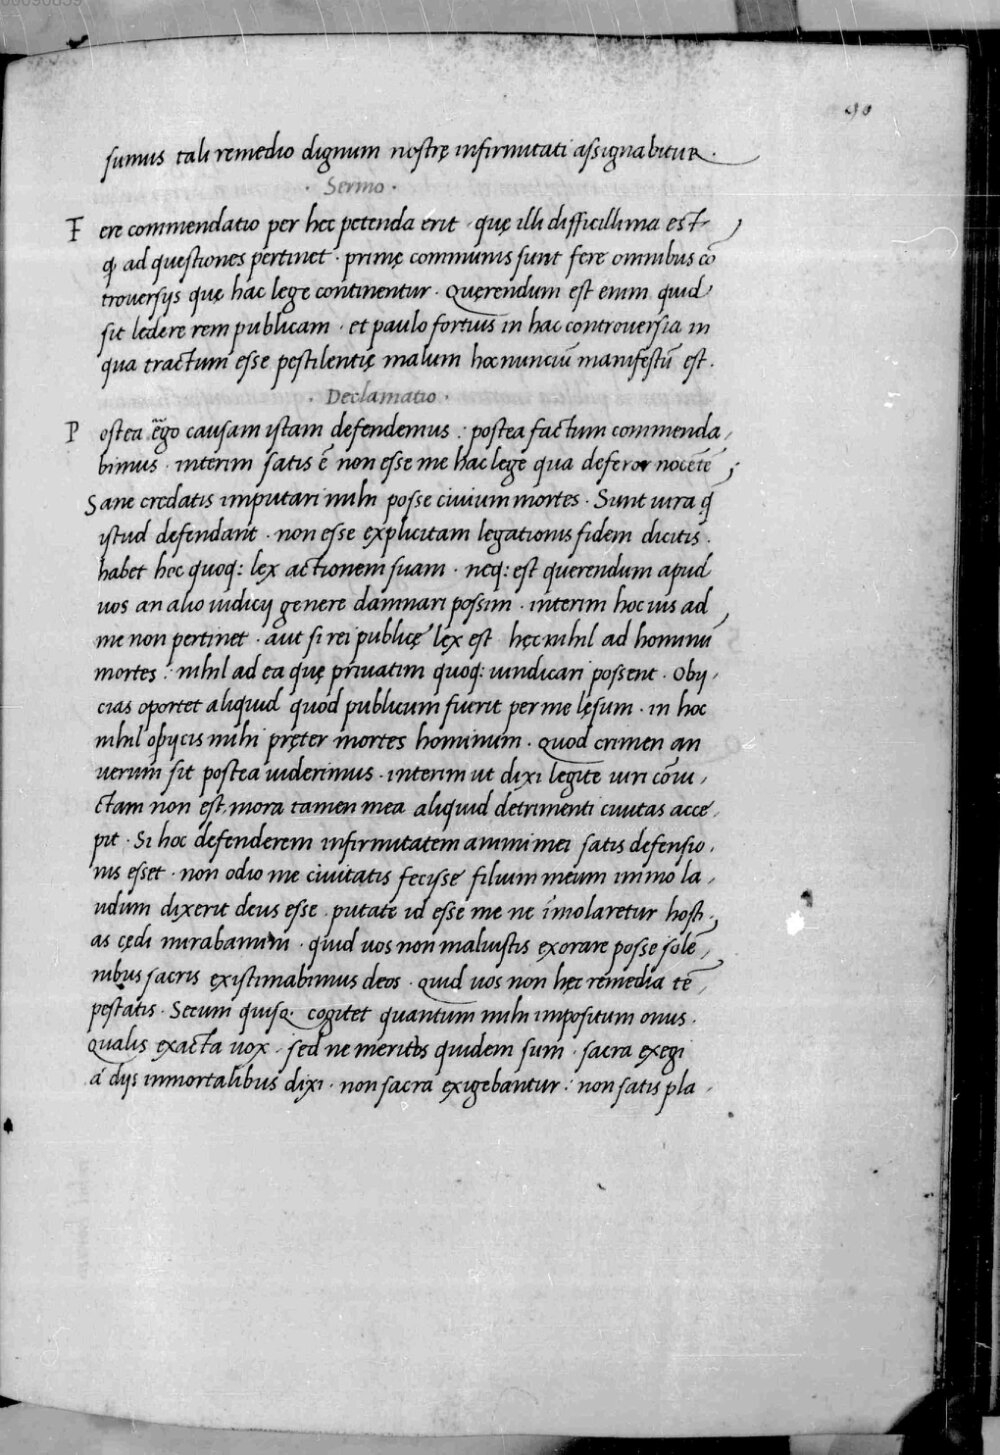 00090859
90
sumus tali remedio dignum nostrę infirmitati assignabitur ·
· Sermo ·
F ere commendatio per hec petenda erit · quę illi difficillima est
ꝙ ad questiones pertinet · primę communis sunt fere omnibus cō
trouersijs quę hac lege continentur · Quęrendum est enim quid
sit ledere rem publicam · et paulo fortius in hac controuersia in
qua tractum esse pestilentię malum hoc nunciū manifestū est ·
· Declamatio ·
P ostea ego causam istam defendemus : postea factum commenda,
bimus · interim satis ē non esse me hac lege qua deferor nocētē
Sane credatis imputari mihi posse ciuium mortes · Sunt iura q̄
istud defendant · non esse explicitam legationis fidem dicitis ·
habet hec quoq: lex actionem suam · neq: est querendum apud
uos an alio iudicij genere damnari possim · interim hoc ius ad
me non pertinet · aut si rei publicę lex est hęc nihil ad hominū
mortes : nihil ad ea quę priuatim quoq: uindicari possent · Obij,
cias oportet aliquid quod publicum fuerit per me lęsum · in hoc
nihil opijcis mihi pręter mortes hominum · quod crimen an
uerum sit postea uiderimus · interim ut dixi legite uiri cōui,
ctam non est, mora tamen mea aliquid detrimenti ciuitas acce,
pit · Si hoc defenderem infirmitatem animi mei satis defensio,
nis esset · non odio me ciuitatis fecisse filium meum immo la,
udum dixerit deus esse · putate id esse me ne īmolaretur hosti,
as cędi mirabamini · quid uos non maluistis exorare posse solē,
nibus sacris ęxistimabimus deos · quid uos non hęc remedia tē,
pestatis · Secum quisq. cogitet quantum mihi impositum onus ·
qualis exacta uox · sed ne meritos quidem sum · sacra exegi
a dijs inmortalibus dixi · non sacra exigebantur : non satis pla,